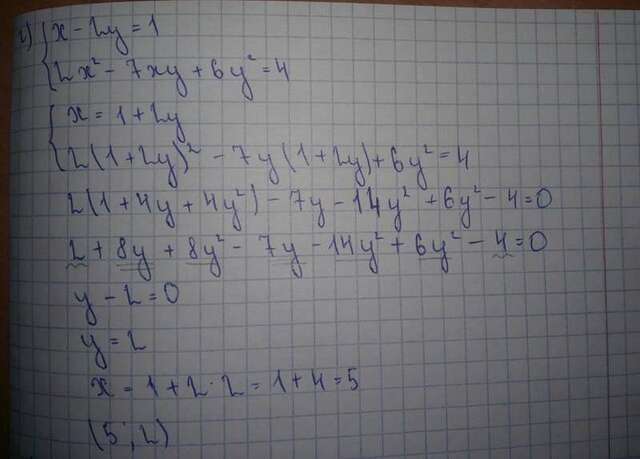 г) { x - 2y = 1
2x² - 7xy + 6y² = 4
{ x = 1 + 2y
2(1 + 2y)² - 7y(1 + 2y) + 6y² = 4
2(1 + 4y + 4y²) - 7y - 14y² + 6y² - 4 = 0
2 + 8y + 8y² - 7y - 14y² + 6y² - 4 = 0
y - 2 = 0
y = 2
x = 1 + 2 · 2 = 1 + 4 = 5
(5; 2)